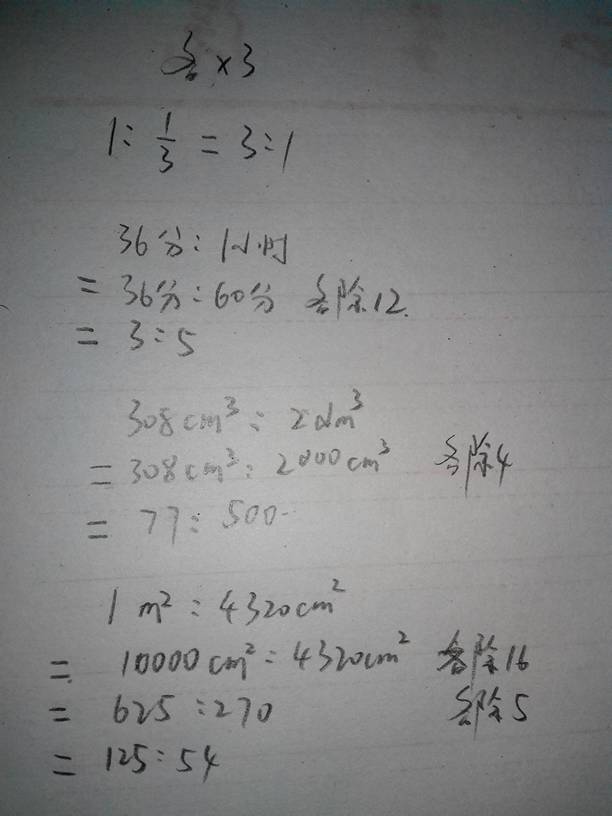 各×3
1:1/3=3:1
36分:1小时
=36分:60分 各除12.
=3:5
308cm³:2dm³
=308cm³:2000cm³ 各除4
=77:500
1m²:4320cm²
=10000cm²:4320cm² 各除16
=625:270 各除5
=125:54